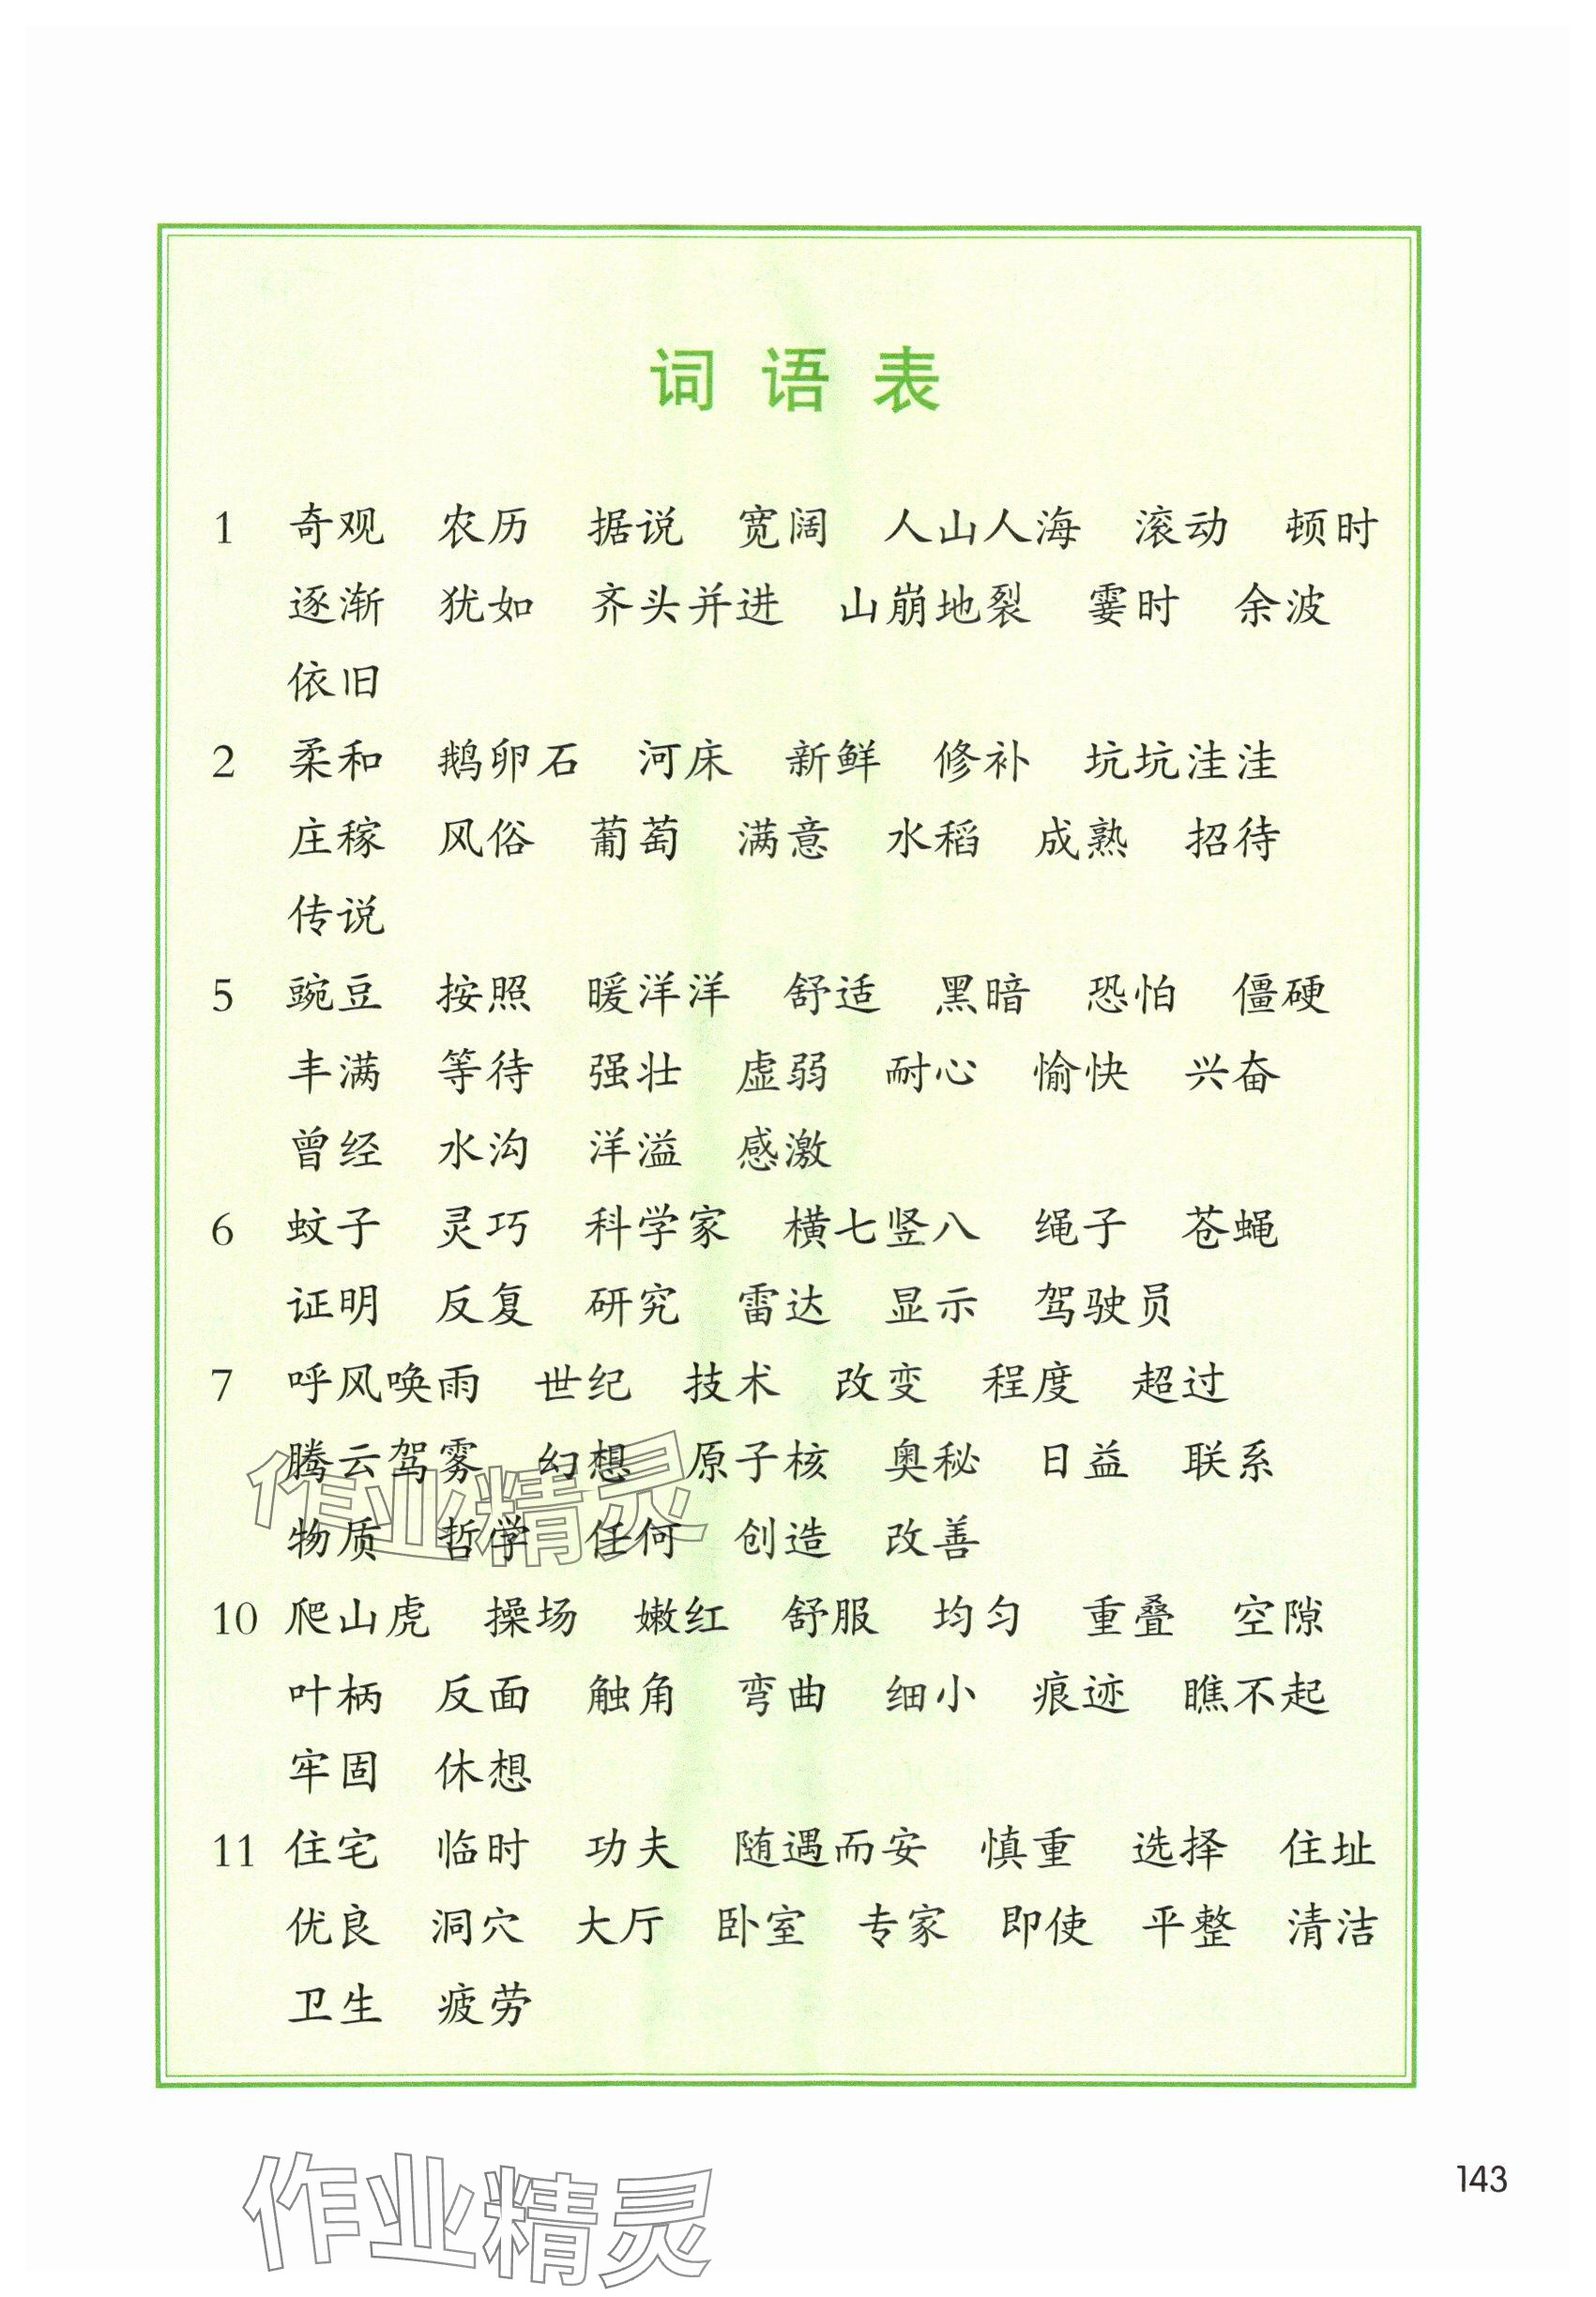 词语表
1 奇观 农历 据说 宽阔 人山人海 滚动 顿时
逐渐 犹如 齐头并进 山崩地裂 霎时 余波
依旧
2 柔和 鹅卵石 河床 新鲜 修补 坑坑洼洼
庄稼 风俗 葡萄 满意 水稻 成熟 招待
传说
5 豌豆 按照 暖洋洋 舒适 黑暗 恐怕 僵硬
丰满 等待 强壮 虚弱 耐心 愉快 兴奋
曾经 水沟 洋溢 感激
6 蚊子 灵巧 科学家 横七竖八 绳子 苍蝇
证明 反复 研究 雷达 显示 驾驶员
7 呼风唤雨 世纪 技术 改变 程度 超过
腾云驾雾 幻想 原子核 奥秘 日益 联系
物质 哲学 任何 创造 改善
作业精灵
10 爬山虎 操场 嫩红 舒服 均匀 重叠 空隙
叶柄 反面 触角 弯曲 细小 痕迹 瞧不起
牢固 休想
11 住宅 临时 功夫 随遇而安 慎重 选择 住址
优良 洞穴 大厅 卧室 专家 即使 平整 清洁
卫生 疲劳
143
作业精灵